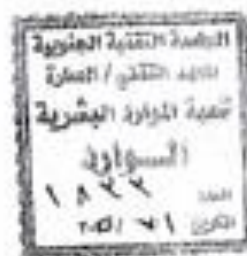 الجامعة التقنية الجنوبية
المعهد التقني / العمارة
شعبة الموارد البشرية
الـــواردة
العدد ١٨٢٢
التاريخ